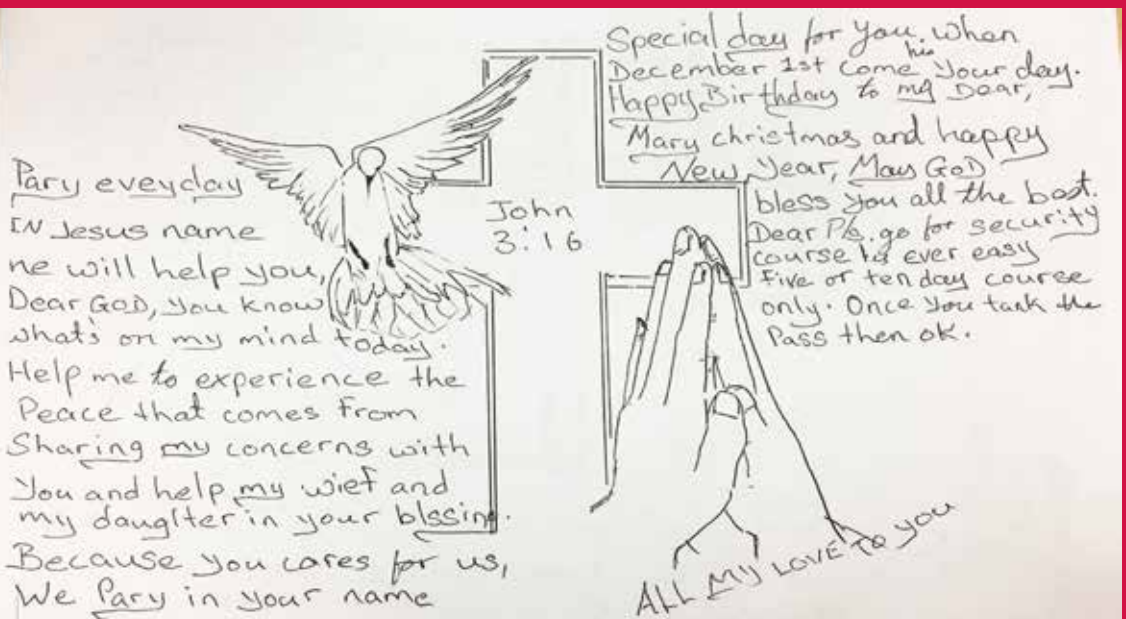 Pary eveyday
IN Jesus name
he will help you,
Dear GOD, you know
what's on my mind today.
Help me to experience the
Peace that comes from
Sharing my concerns with
you and help my wief and
my daughter in your blssing.
Because you cares for us,
We Pary in your name
John
3:16
Special day for you. When
his
December 1st come your day.
Happy Birthday to my Dear,
Mary christmas and happy
New Year, May GOD
bless you all the bast.
Dear Pls. go for security
course is ever easy
Five or ten day course
only. Once you tank the
Pass then ok.
ALL MY LOVE TO YOU